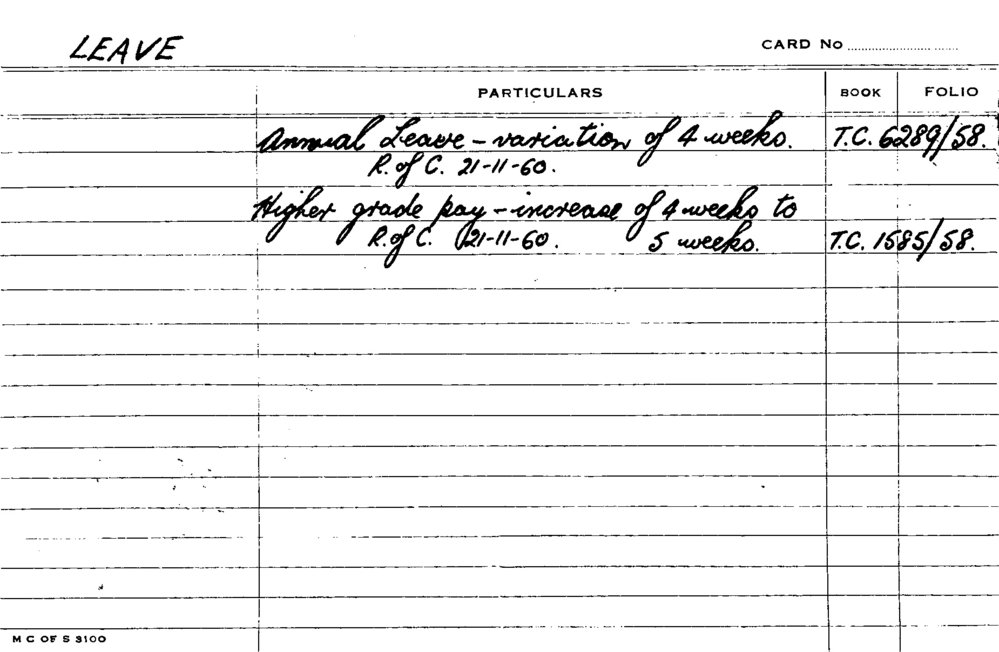 LEAVE
CARD No
PARTICULARS BOOK FOLIO
Annual Leave - variation of 4 weeks. T.C. 6289/58.
R. of C. 21-11-60.
Higher grade pay - increase of 4 weeks to
R. of C. 21-11-60. 5 weeks. T.C. 1585/58.
M C OF S 3100